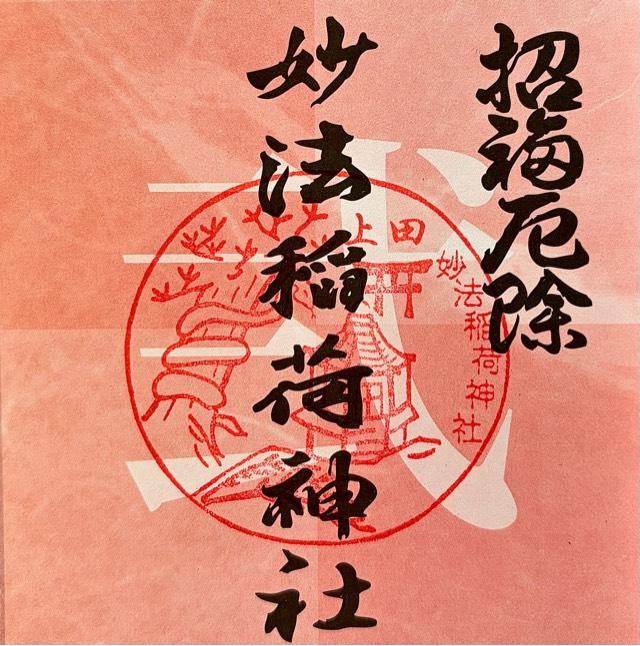 招福厄除
妙法稲荷神社
上田
妙法稲荷神社